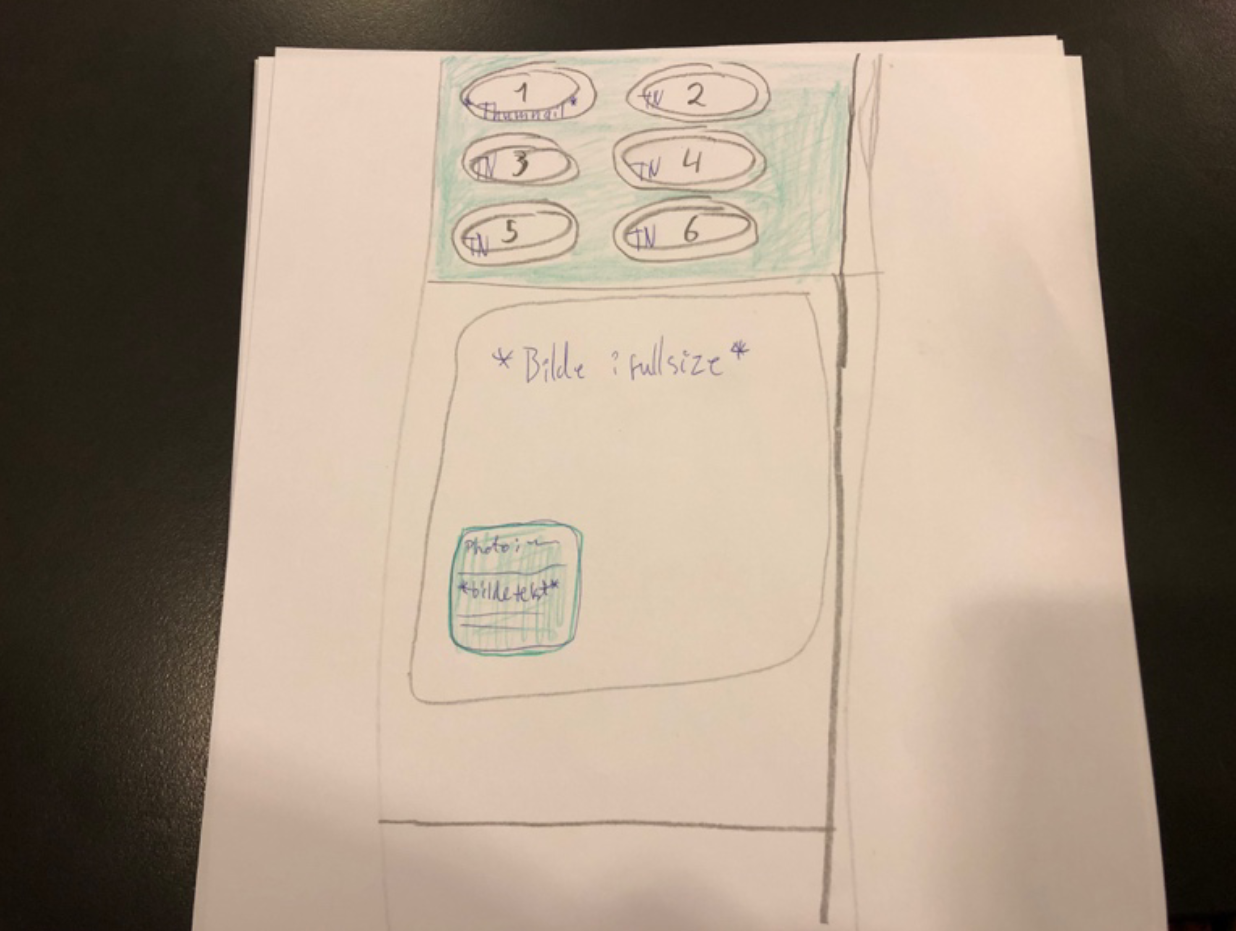 1
*Thumnail*
TN 2
TN 3
TN 4
TN 5
TN 6
*Bilde i fullsize*
Photo:
*bildetekst*